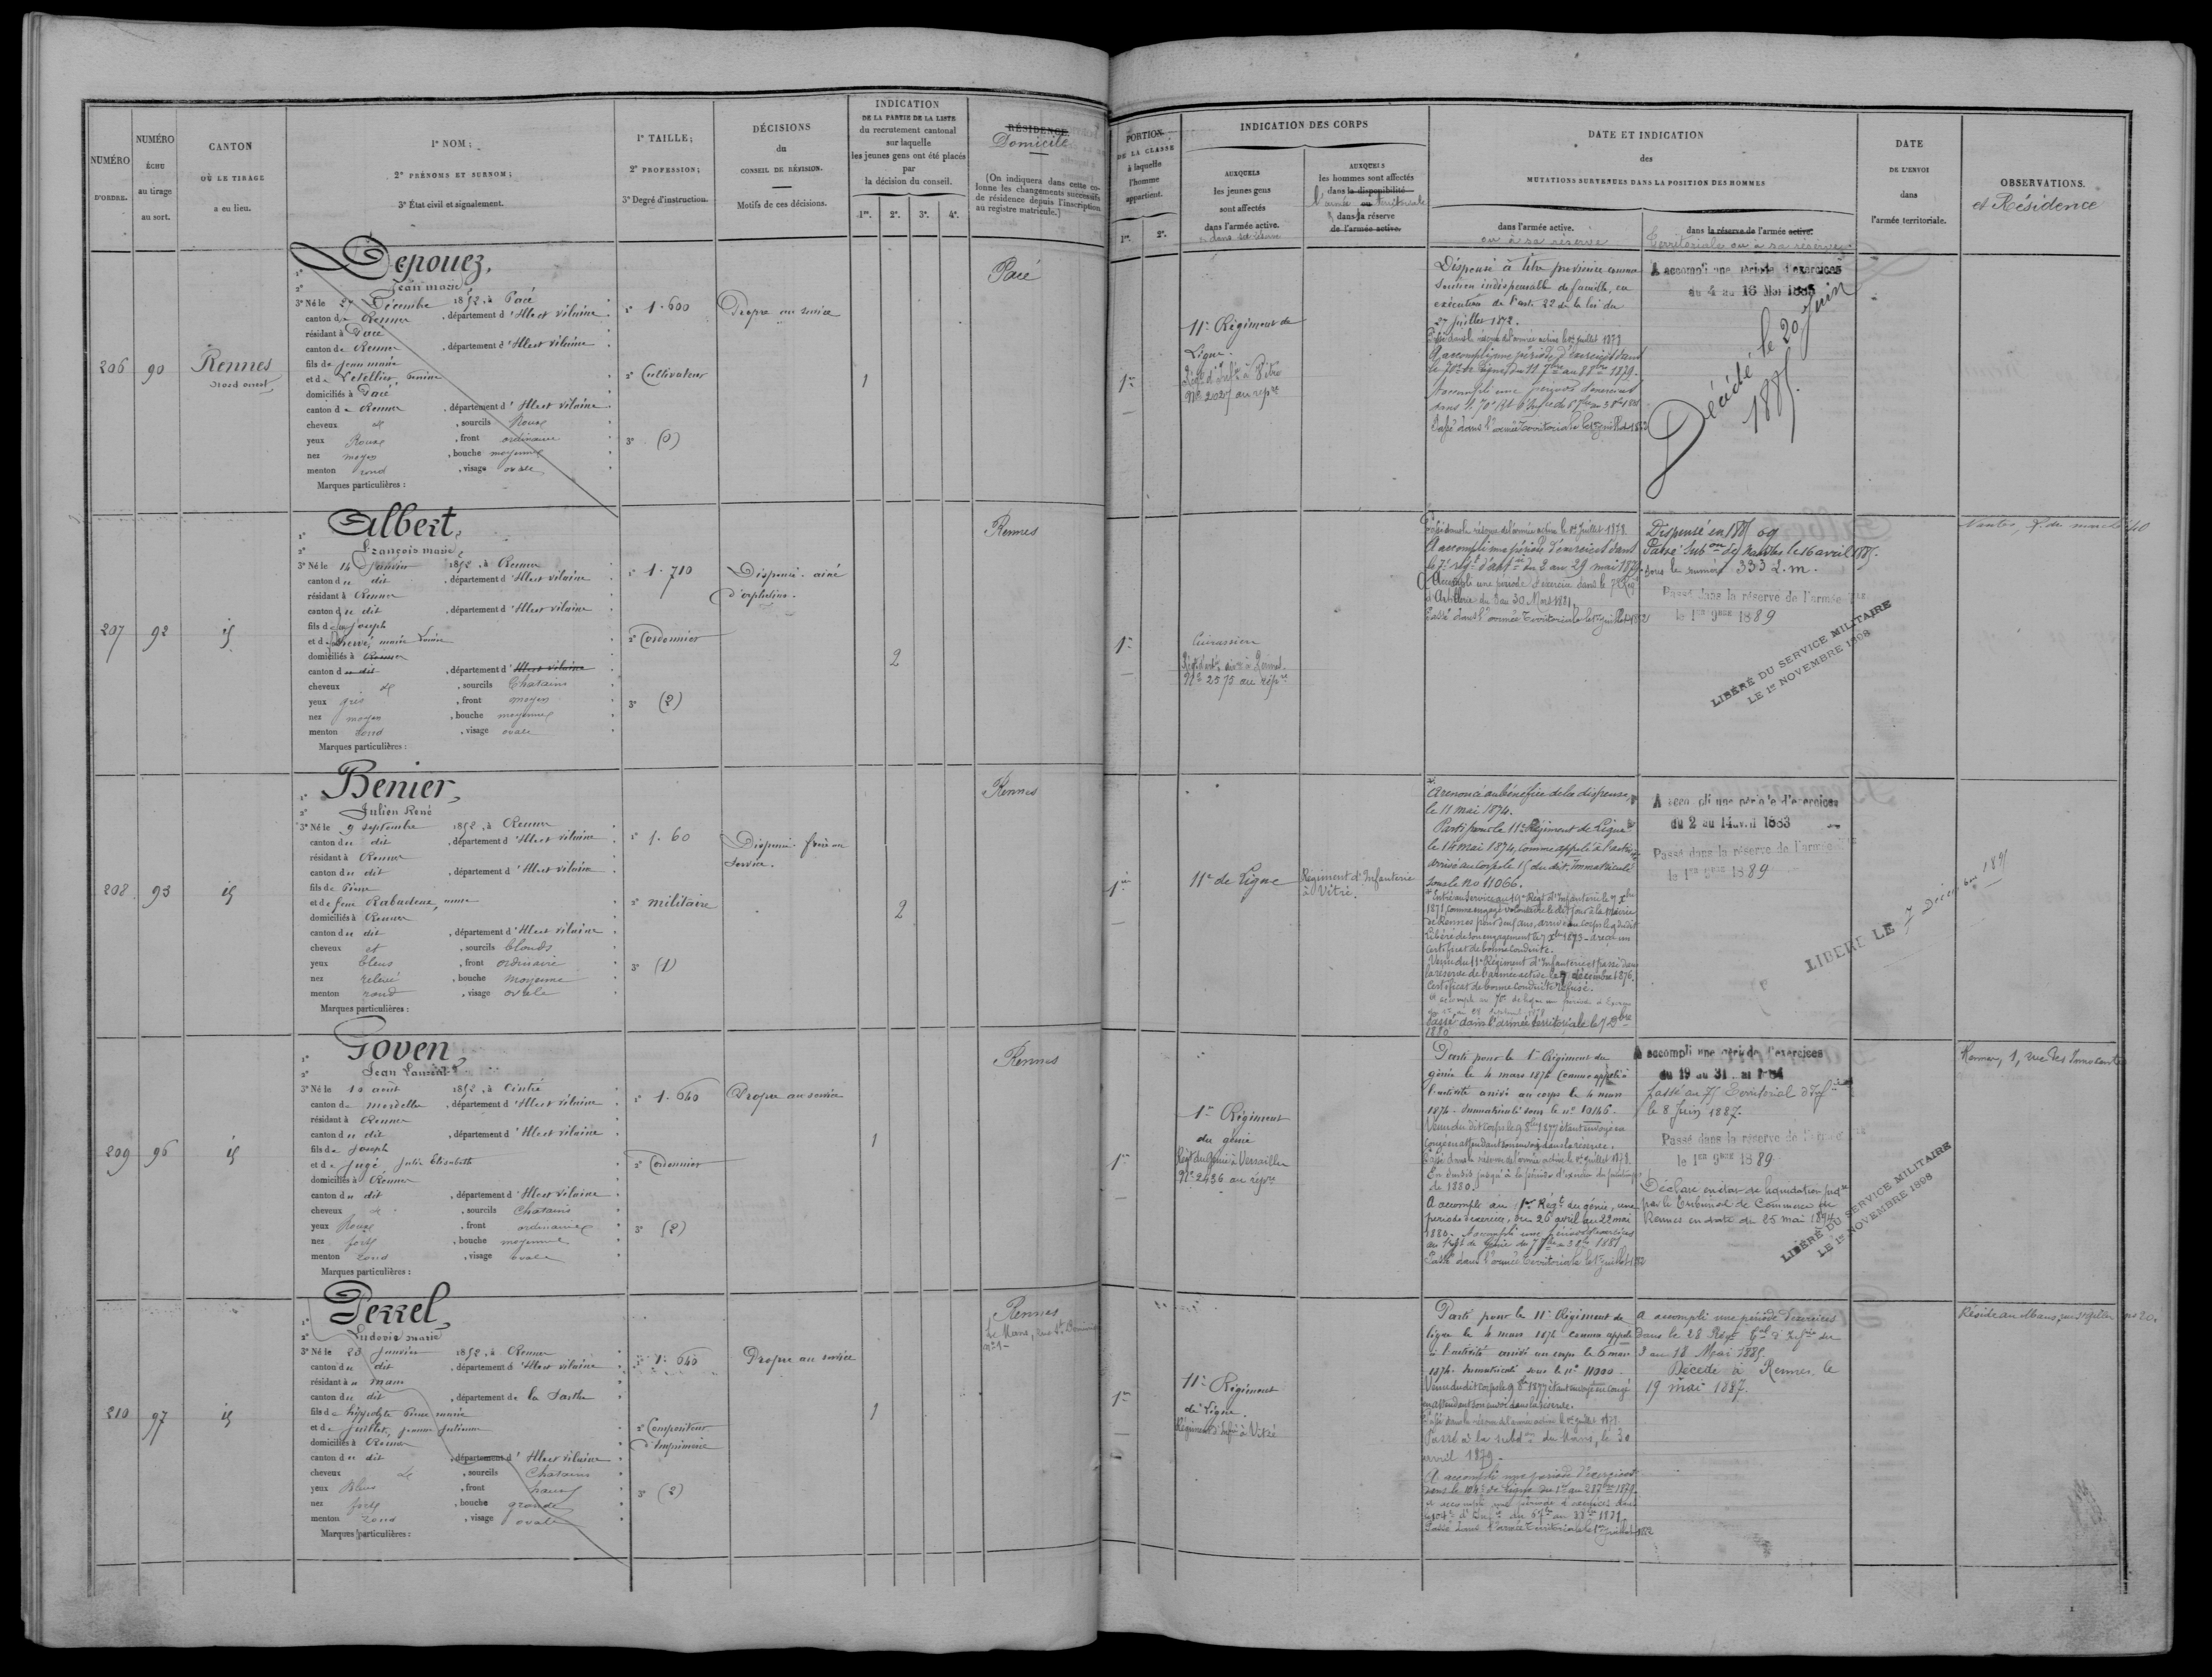 NUMÉRO
D'ORDRE.
NUMÉRO
ÉCHU
au tirage
au sort.
CANTON
OÙ LE TIRAGE
a eu lieu.
1° NOM;
2° PRÉNOMS ET SURNOM;
3° État civil et signalement.
1° TAILLE;
2° PROFESSION;
3° Degré d'instruction.
DÉCISIONS
du
CONSEIL DE RÉVISION.
Motifs de ces décisions.
INDICATION
DE LA PARTIE DE LA LISTE
du recrutement cantonal
sur laquelle
les jeunes gens ont été placés
par
la décision du conseil.
1re. 2e. 3e. 4e.
RÉSIDENCE
Domicile
[On indiquera dans cette co-
lonne les changements successifs
de résidence depuis l'inscription
au registre matricule.]
PORTION
DE LA CLASSE
à laquelle
l'homme
appartient.
1re. 2e.
INDICATION DES CORPS
AUXQUELS
les jeunes gens
sont affectés
dans l'armée active.
AUXQUELS
les hommes sont affectés
dans la disponibilité
l'armée ou territoriale
dans la réserve
de l'armée active.
DATE ET INDICATION
des
MUTATIONS SURVENUES DANS LA POSITION DES HOMMES
dans l'armée active.
ou à sa réserve
dans la réserve de l'armée active.
Territoriale ou à sa réserve
DATE
DE L'ENVOI
dans
l'armée territoriale.
OBSERVATIONS.
et Résidence
206
90
Rennes
Nord ouest
1° Depouez,
2° Jean marie
3° Né le 27 Décembre 1852, à Pacé
canton de Rennes, département d'Illeet vilaine
résidant à Pacé
canton de Rennes, département d'Illeet vilaine
fils de Jean marie
et de Letellier,
domiciliés à Pacé
canton de Rennes, département d'Illeet vilaine
cheveux et, sourcils Roux
yeux Roux, front ordinaire
nez moyen, bouche moyenne
menton rond, visage ovale
Marques particulières :
1° 1.600
2° Cultivateur
3° (0)
Propre au service
1
Pacé
1re
11e Régiment de
Ligne.
Régt d'Infie à Vitré
No 2027 au répre
Dispensé à titre provisoire comme
Soutien indispensable de famille, en
exécution de l'art. 22 de la loi du
27 juillet 1872.
Passé dans la réserve de l'armée active le 1er juillet 1878
A accompli une période d'exercices dans
le 70e de ligne du 11 7bre au 8 8bre 1879.
Accompli une période d'exercices
Passé dans l'armée Territoriale le 1er juillet 1882
A accompli une période d'exercices
du 4 au 16 Mai 1885
Décédé le 20 Juin
1885.
207
92
id
1° Albert,
2° François marie
3° Né le 14 Janvier 1852, à Rennes
canton du dit, département d'Illeet vilaine
résidant à Rennes
canton du dit, département d'Illeet vilaine
fils de feu Joseph
et de Hervé, marie Louise
domiciliés à Rennes
canton du dit, département d'Illeet vilaine
cheveux et, sourcils Chatains
yeux gris, front moyen
nez moyen, bouche moyenne
menton rond, visage ovale
Marques particulières :
1° 1.710
2° Cordonnier
3° (2)
Dispensé. ainé
d'orphelins.
2
Rennes
1re
Cuirassiers
No 2575 au répre
Passé dans la réserve de l'armée active le 1er juillet 1878
A accompli une période d'exercices dans
le 7e régt d'artie du 2 au 29 mai 1879.
Accompli une période d'exercice dans le 7e Régt
d'Artillerie du 3 au 30 Mars 1881
Passé dans l'armée Territoriale le 1er juillet 1882
Dispensé en 1885
Passé Subon de Nantes le 16 avril 1885.
sous le numéro 333 L.m.
Passé dans la réserve de l'armée Tle
le 1er 9bre 1889
LIBÉRÉ DU SERVICE MILITAIRE
LE 1er NOVEMBRE 1908
208
93
id
1° Benier,
2° Julien René
3° Né le 9 septembre 1852, à Rennes
canton du dit, département d'Illeet vilaine
résidant à Rennes
canton du dit, département d'Illeet vilaine
fils de Pierre
et de feue Rabuclene, anne
domiciliés à Rennes
canton du dit, département d'Illeet vilaine
cheveux et, sourcils blonds
yeux bleus, front ordinaire
nez relevé, bouche moyenne
menton rond, visage ovale
Marques particulières :
1° 1.60
2° militaire
3° (1)
Dispensé. frère au
Service.
2
Rennes
1re
11e de Ligne
Régiment d'Infanterie
à Vitré.
A renoncé au bénéfice de la dispense,
le 11 mai 1874.
Parti pour le 11e Régiment de Ligne
le 14 mai 1874, comme appelé à l'activité
arrivé au corps le 15 du dit, immatriculé
sous le No 11066.
Libéré de son engagement le 7 Xbre 1873 - a reçu un
certificat de bonne conduite.
Venu du 11e Régiment d'Infanterie et passé dans
la réserve de l'armée active le 7 décembre 1876.
Certificat de bonne conduite refusé.
Passé dans l'armée territoriale le 7 Xbre
1880
A accompli une période d'exercices
du 2 au 14 avril 1883
Passé dans la réserve de l'armée Tle
le 1er 9bre 1889
LIBÉRÉ LE 7 Décembre 1891
209
96
id
1° Goven,
2° Jean Laurent
3° Né le 10 août 1852, à Cintré
canton de Mordelles, département d'Illeet vilaine
résidant à Rennes
canton du dit, département d'Illeet vilaine
fils de Joseph
et de Jugé, Julie Elisabeth
domiciliés à Rennes
canton du dit, département d'Illeet vilaine
cheveux et, sourcils Chatains
yeux Roux, front ordinaire
nez fort, bouche moyenne
menton rond, visage ovale
Marques particulières :
1° 1.640
2° Cordonnier
3° (2)
Propre au service
1
Rennes
1re
1er Régiment
du génie
Régt du Génie à Versailles
No 2436 au répre
Parti pour le 1er Régiment du
génie le 4 mars 1874 comme appelé à
l'activité arrivé au corps le 4 mars
1874 - Immatriculé sous le no 10146.
Venu du dit corps le 9 8bre 1877 étant envoyé en
congé en attendant son envoi dans la réserve.
Passé dans la réserve de l'armée active le 1er juillet 1878
En sursis jusqu'à la période d'exercices du printemps
de 1880.
A accompli au 1er Régt du génie, une
période d'exercice, du 26 avril au 22 mai
1880. Accompli une période d'exercices
Passé dans l'armée Territoriale le 1er juillet 1882
A accompli une période d'exercices
du 19 au 31 mai 1884
Passé au 75 Territorial d'Infie
le 8 Juin 1887.
Passé dans la réserve de l'armée Tle
le 1er 9bre 1889
Déclaré en état de liquidation judre
par le Tribunal de Commerce de
Rennes en date du 25 mai 1894
LIBÉRÉ DU SERVICE MILITAIRE
LE 1er NOVEMBRE 1908
210
97
id
1° Perrel,
2° Ludovic marie
3° Né le 23 Janvier 1852, à Rennes
canton du dit, département d'Illeet vilaine
résidant au Mans
canton du dit, département de la Sarthe
fils de hippolyte Pierre marie
et de Juillet, Jeanne Julienne
domiciliés à Rennes
canton du dit, département d'Illeet vilaine
cheveux et, sourcils Chatains
yeux Bleus, front haut
nez fort, bouche grande
menton rond, visage ovale
Marques particulières :
1° 1.640
2° Compositeur
d'Imprimerie
3° (2)
Propre au service
1
Rennes
1re
11e Régiment
de Ligne.
Régiment d'Infie à Vitré
Parti pour le 11e Régiment de
ligne le 4 mars 1874 comme appelé
à l'activité arrivé au corps le 6 mars
1874. Immatriculé sous le no 11000.
Venu du dit corps le 9 8bre 1877 étant envoyé en congé
en attendant son envoi dans la réserve.
Passé dans la réserve de l'armée active le 1er juillet 1878
Passé à la subdon du Mans, le 30
avril 1879.
A accompli une période d'exercices
Passé dans l'armée territoriale le 1er juillet 1882
A accompli une période d'exercices
dans le 28 Régt Tal d'Infie du
3 au 18 Mai 1885.
Décédé à Rennes le
19 mai 1887.